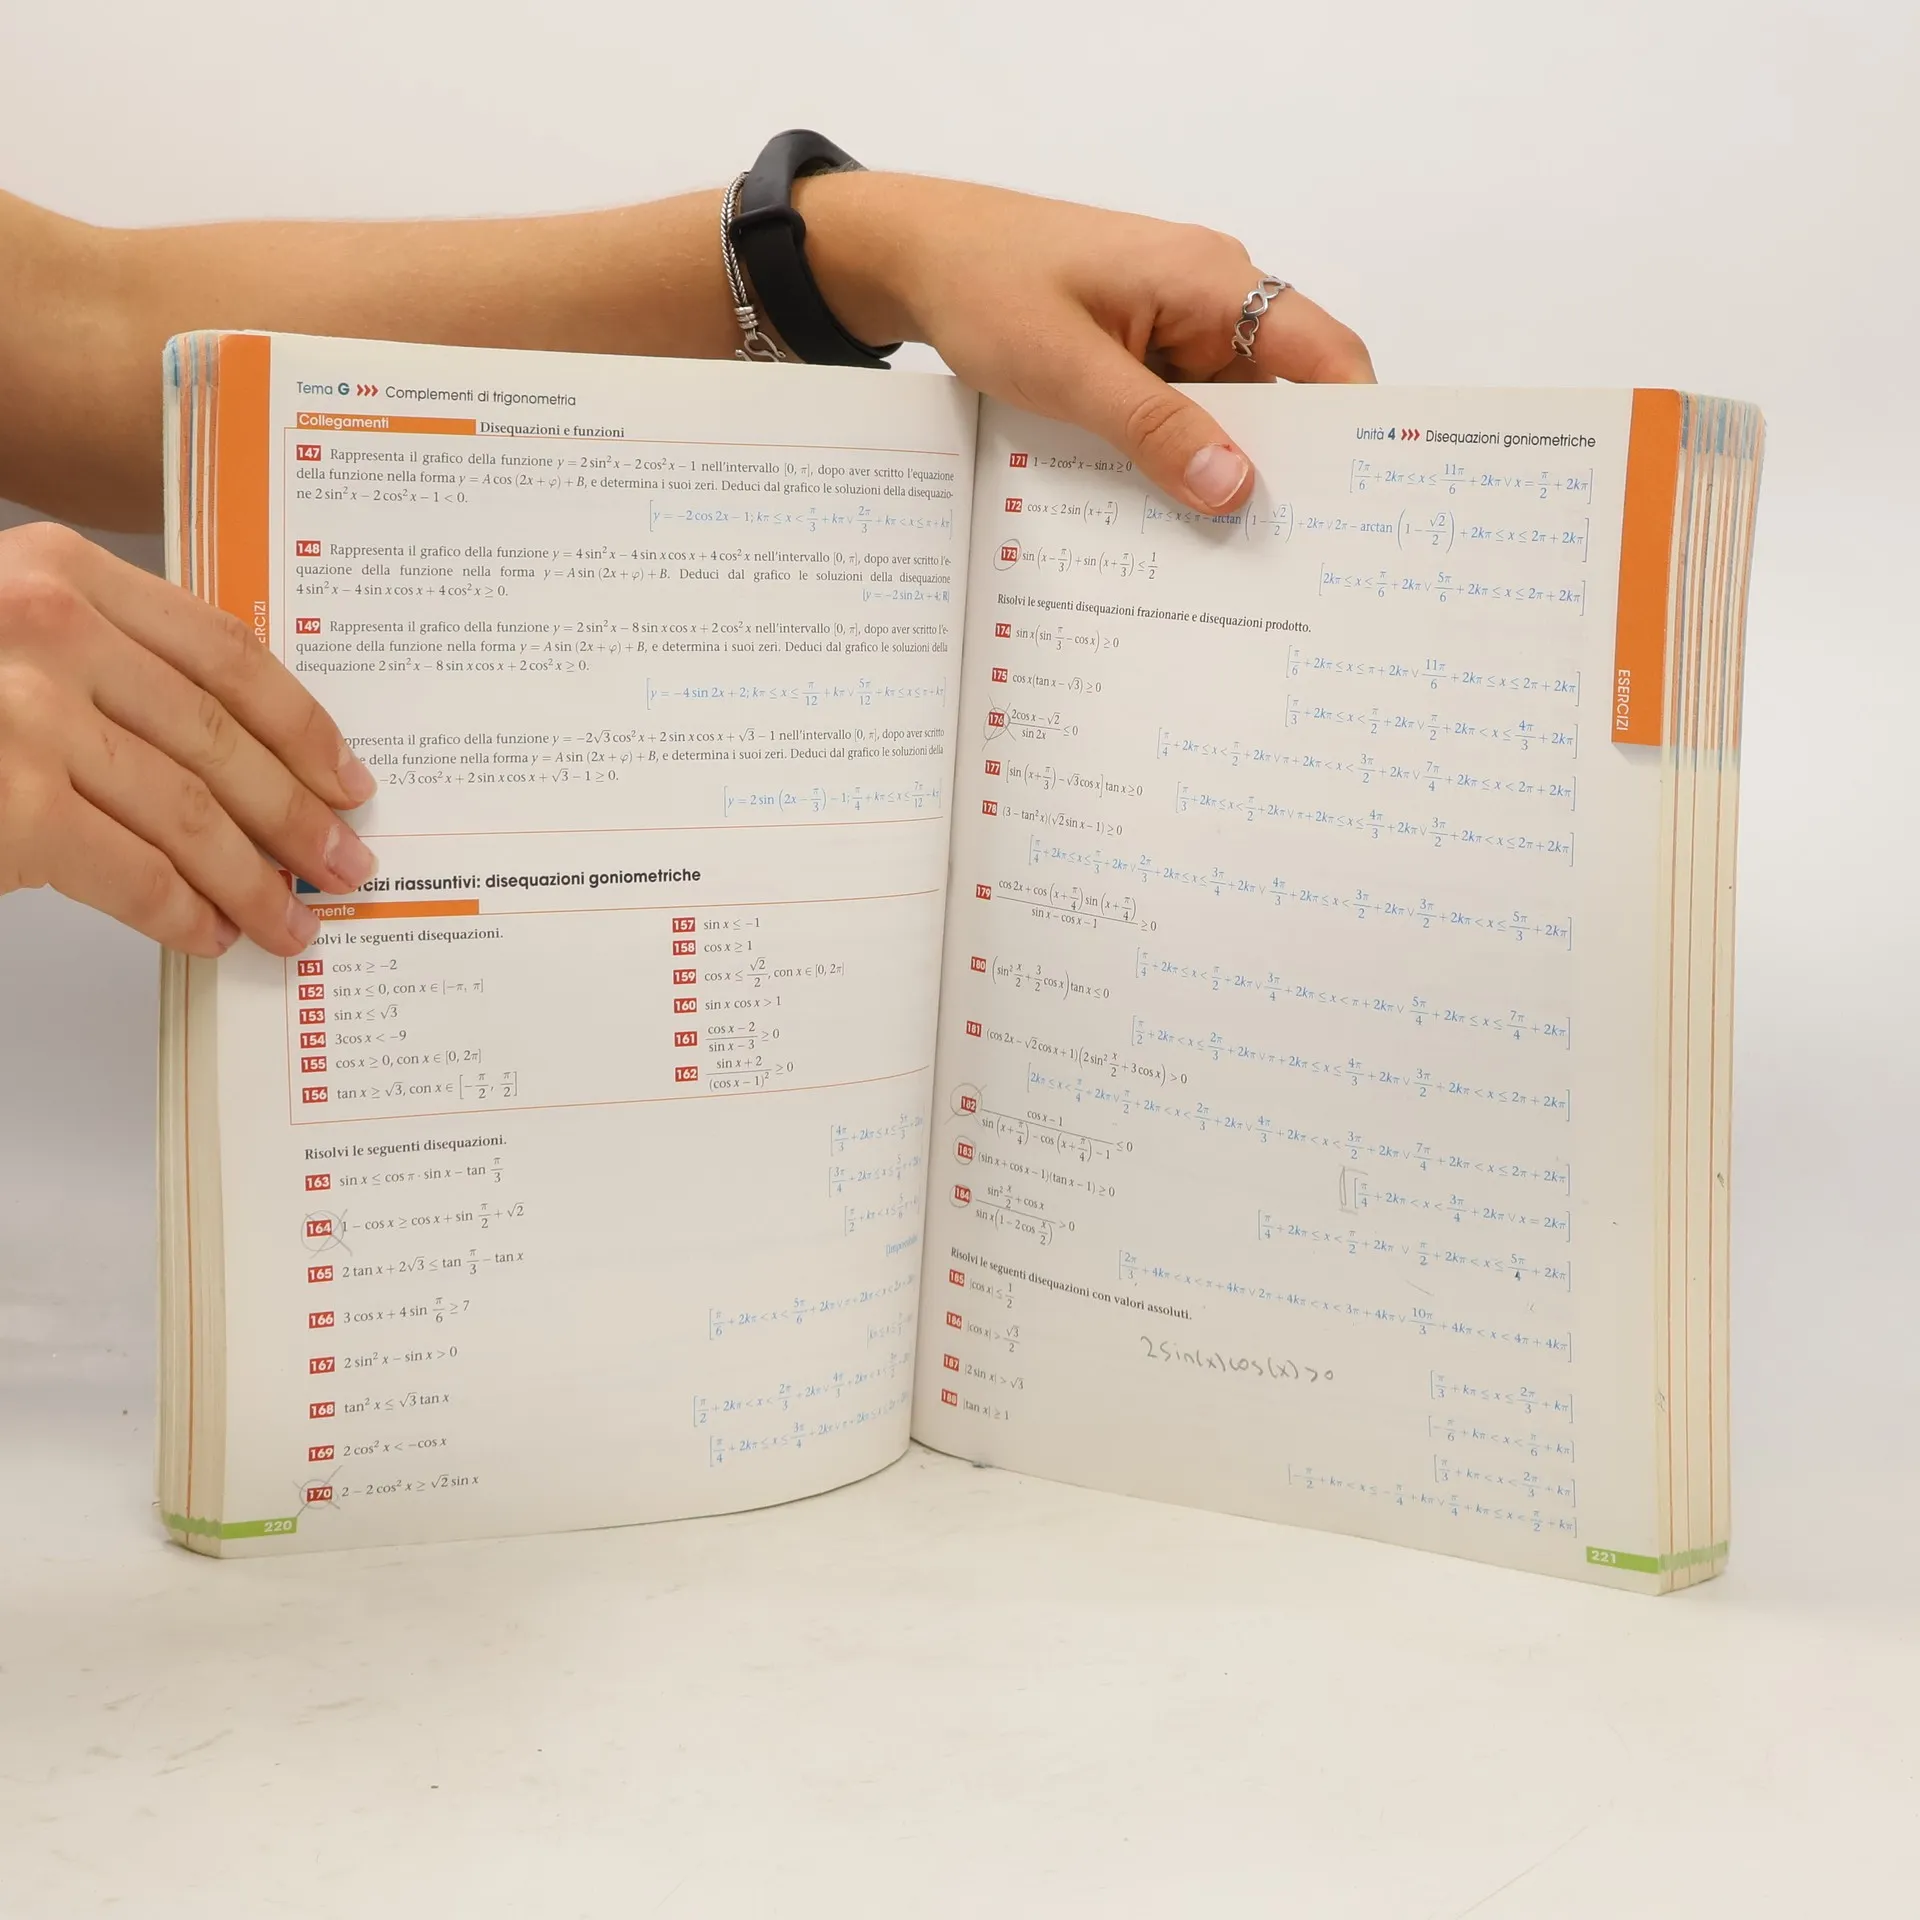 Tema G >>> Complementi di trigonometria
Collegamenti
Disequazioni e funzioni
147 Rappresenta il grafico della funzione y = 2 sin² x − 2 cos² x − 1 nell'intervallo [0, π], dopo aver scritto l'equazione
della funzione nella forma y = A cos (2x + φ) + B, e determina i suoi zeri. Deduci dal grafico le soluzioni della disequazio-
ne 2 sin² x − 2 cos² x − 1 < 0.
[y = −2 cos 2x − 1; kπ ≤ x < π/3 + kπ ∨ 2π/3 + kπ < x ≤ π + kπ]
148 Rappresenta il grafico della funzione y = 4 sin² x − 4 sin x cos x + 4 cos² x nell'intervallo [0, π], dopo aver scritto l'e-
quazione della funzione nella forma y = A sin (2x + φ) + B. Deduci dal grafico le soluzioni della disequazione
4 sin² x − 4 sin x cos x + 4 cos² x ≥ 0.
[y = −2 sin 2x + 4; R]
149 Rappresenta il grafico della funzione y = 2 sin² x − 8 sin x cos x + 2 cos² x nell'intervallo [0, π], dopo aver scritto l'e-
quazione della funzione nella forma y = A sin (2x + φ) + B, e determina i suoi zeri. Deduci dal grafico le soluzioni della
disequazione 2 sin² x − 8 sin x cos x + 2 cos² x ≥ 0.
[y = −4 sin 2x + 2; kπ ≤ x ≤ π/12 + kπ ∨ 5π/12 + kπ ≤ x ≤ π + kπ]
ppresenta il grafico della funzione y = −2√3 cos² x + 2 sin x cos x + √3 − 1 nell'intervallo [0, π], dopo aver scritto
e della funzione nella forma y = A sin (2x + φ) + B, e determina i suoi zeri. Deduci dal grafico le soluzioni della
−2√3 cos² x + 2 sin x cos x + √3 − 1 ≥ 0.
[y = 2 sin (2x − π/3) − 1; π/4 + kπ ≤ x ≤ 7π/12 + kπ]
cizi riassuntivi: disequazioni goniometriche
mente
solvi le seguenti disequazioni.
151 cos x ≥ −2
152 sin x ≤ 0, con x ∈ [−π, π]
153 sin x ≤ √3
154 3cos x < −9
155 cos x ≥ 0, con x ∈ [0, 2π]
156 tan x ≥ √3, con x ∈ [−π/2, π/2]
157 sin x ≤ −1
158 cos x ≥ 1
159 cos x ≤ √2/2, con x ∈ [0, 2π]
160 sin x cos x > 1
161 (cos x − 2)/(sin x − 3) ≥ 0
162 (sin x + 2)/(cos x − 1)² ≥ 0
Risolvi le seguenti disequazioni.
163 sin x ≤ cos π · sin x − tan π/3
164 1 − cos x ≥ cos x + sin π/2 + √2
165 2 tan x + 2√3 ≤ tan π/3 − tan x
166 3 cos x + 4 sin π/6 ≥ 7
167 2 sin² x − sin x > 0
168 tan² x ≤ √3 tan x
169 2 cos² x < −cos x
170 2 − 2 cos² x ≥ √2 sin x
220
ESERCIZI
Unità 4 >>> Disequazioni goniometriche
171 1 − 2 cos² x − sin x ≥ 0
[7π/6 + 2kπ ≤ x ≤ 11π/6 + 2kπ ∨ x = π/2 + 2kπ]
172 cos x ≤ 2 sin (x + π/4)
[2kπ ≤ x ≤ π − arctan (1 − √2/2) + 2kπ ∨ 2π − arctan (1 − √2/2) + 2kπ ≤ x ≤ 2π + 2kπ]
173 sin (x − π/3) + sin (x + π/3) ≤ 1/2
[2kπ ≤ x ≤ π/6 + 2kπ ∨ 5π/6 + 2kπ ≤ x ≤ 2π + 2kπ]
Risolvi le seguenti disequazioni frazionarie e disequazioni prodotto.
174 sin x(sin π/3 − cos x) ≥ 0
[π/6 + 2kπ ≤ x ≤ π + 2kπ ∨ 11π/6 + 2kπ ≤ x ≤ 2π + 2kπ]
175 cos x(tan x − √3) ≥ 0
[π/3 + 2kπ ≤ x < π/2 + 2kπ ∨ π/2 + 2kπ < x ≤ 4π/3 + 2kπ]
176 (2cos x − √2)/(sin 2x) ≤ 0
[π/4 + 2kπ ≤ x < π/2 + 2kπ ∨ π + 2kπ < x < 3π/2 + 2kπ ∨ 7π/4 + 2kπ ≤ x < 2π + 2kπ]
177 [sin (x + π/3) − √3 cos x] tan x ≥ 0
[π/3 + 2kπ ≤ x < π/2 + 2kπ ∨ π + 2kπ ≤ x ≤ 4π/3 + 2kπ ∨ 3π/2 + 2kπ < x ≤ 2π + 2kπ]
178 (3 − tan² x)(√2 sin x − 1) ≥ 0
[π/4 + 2kπ ≤ x ≤ π/3 + 2kπ ∨ 2π/3 + 2kπ ≤ x ≤ 3π/4 + 2kπ ∨ 4π/3 + 2kπ ≤ x < 3π/2 + 2kπ ∨ 3π/2 + 2kπ < x ≤ 5π/3 + 2kπ]
179 (cos 2x + cos (x + π/4) sin (x + π/4))/(sin x − cos x − 1) ≥ 0
[π/4 + 2kπ ≤ x < π/2 + 2kπ ∨ 3π/4 + 2kπ ≤ x < π + 2kπ ∨ 5π/4 + 2kπ ≤ x ≤ 7π/4 + 2kπ]
180 (sin² x/2 + 3/2 cos x) tan x ≤ 0
[π/2 + 2kπ < x ≤ 2π/3 + 2kπ ∨ π + 2kπ ≤ x ≤ 4π/3 + 2kπ ∨ 3π/2 + 2kπ < x ≤ 2π + 2kπ]
181 (cos 2x − √2 cos x + 1)(2 sin² x/2 + 3 cos x) > 0
[2kπ ≤ x < π/4 + 2kπ ∨ π/2 + 2kπ < x < 2π/3 + 2kπ ∨ 4π/3 + 2kπ < x < 3π/2 + 2kπ ∨ 7π/4 + 2kπ < x ≤ 2π + 2kπ]
182 (cos x − 1)/(sin (x + π/4) − cos (x + π/4) − 1) ≤ 0
[π/4 + 2kπ < x < 3π/4 + 2kπ ∨ x = 2kπ]
183 (sin x + cos x − 1)(tan x − 1) ≥ 0
[π/4 + 2kπ ≤ x < π/2 + 2kπ ∨ π/2 + 2kπ < x ≤ 5π/4 + 2kπ]
184 (sin² x/2 + cos x)/(sin x(1 − 2 cos x/2)) > 0
[2π/3 + 4kπ < x < π + 4kπ ∨ 2π + 4kπ < x < 3π + 4kπ ∨ 10π/3 + 4kπ < x < 4π + 4kπ]
Risolvi le seguenti disequazioni con valori assoluti.
185 |cos x| ≤ 1/2
[π/3 + kπ ≤ x ≤ 2π/3 + kπ]
186 |cos x| > √3/2
[−π/6 + kπ < x < π/6 + kπ]
187 |2 sin x| > √3
[π/3 + kπ < x < 2π/3 + kπ]
188 |tan x| ≥ 1
[−π/2 + kπ < x ≤ −π/4 + kπ ∨ π/4 + kπ ≤ x < π/2 + kπ]
2 sin(x) cos(x) > 0
ESERCIZI
221